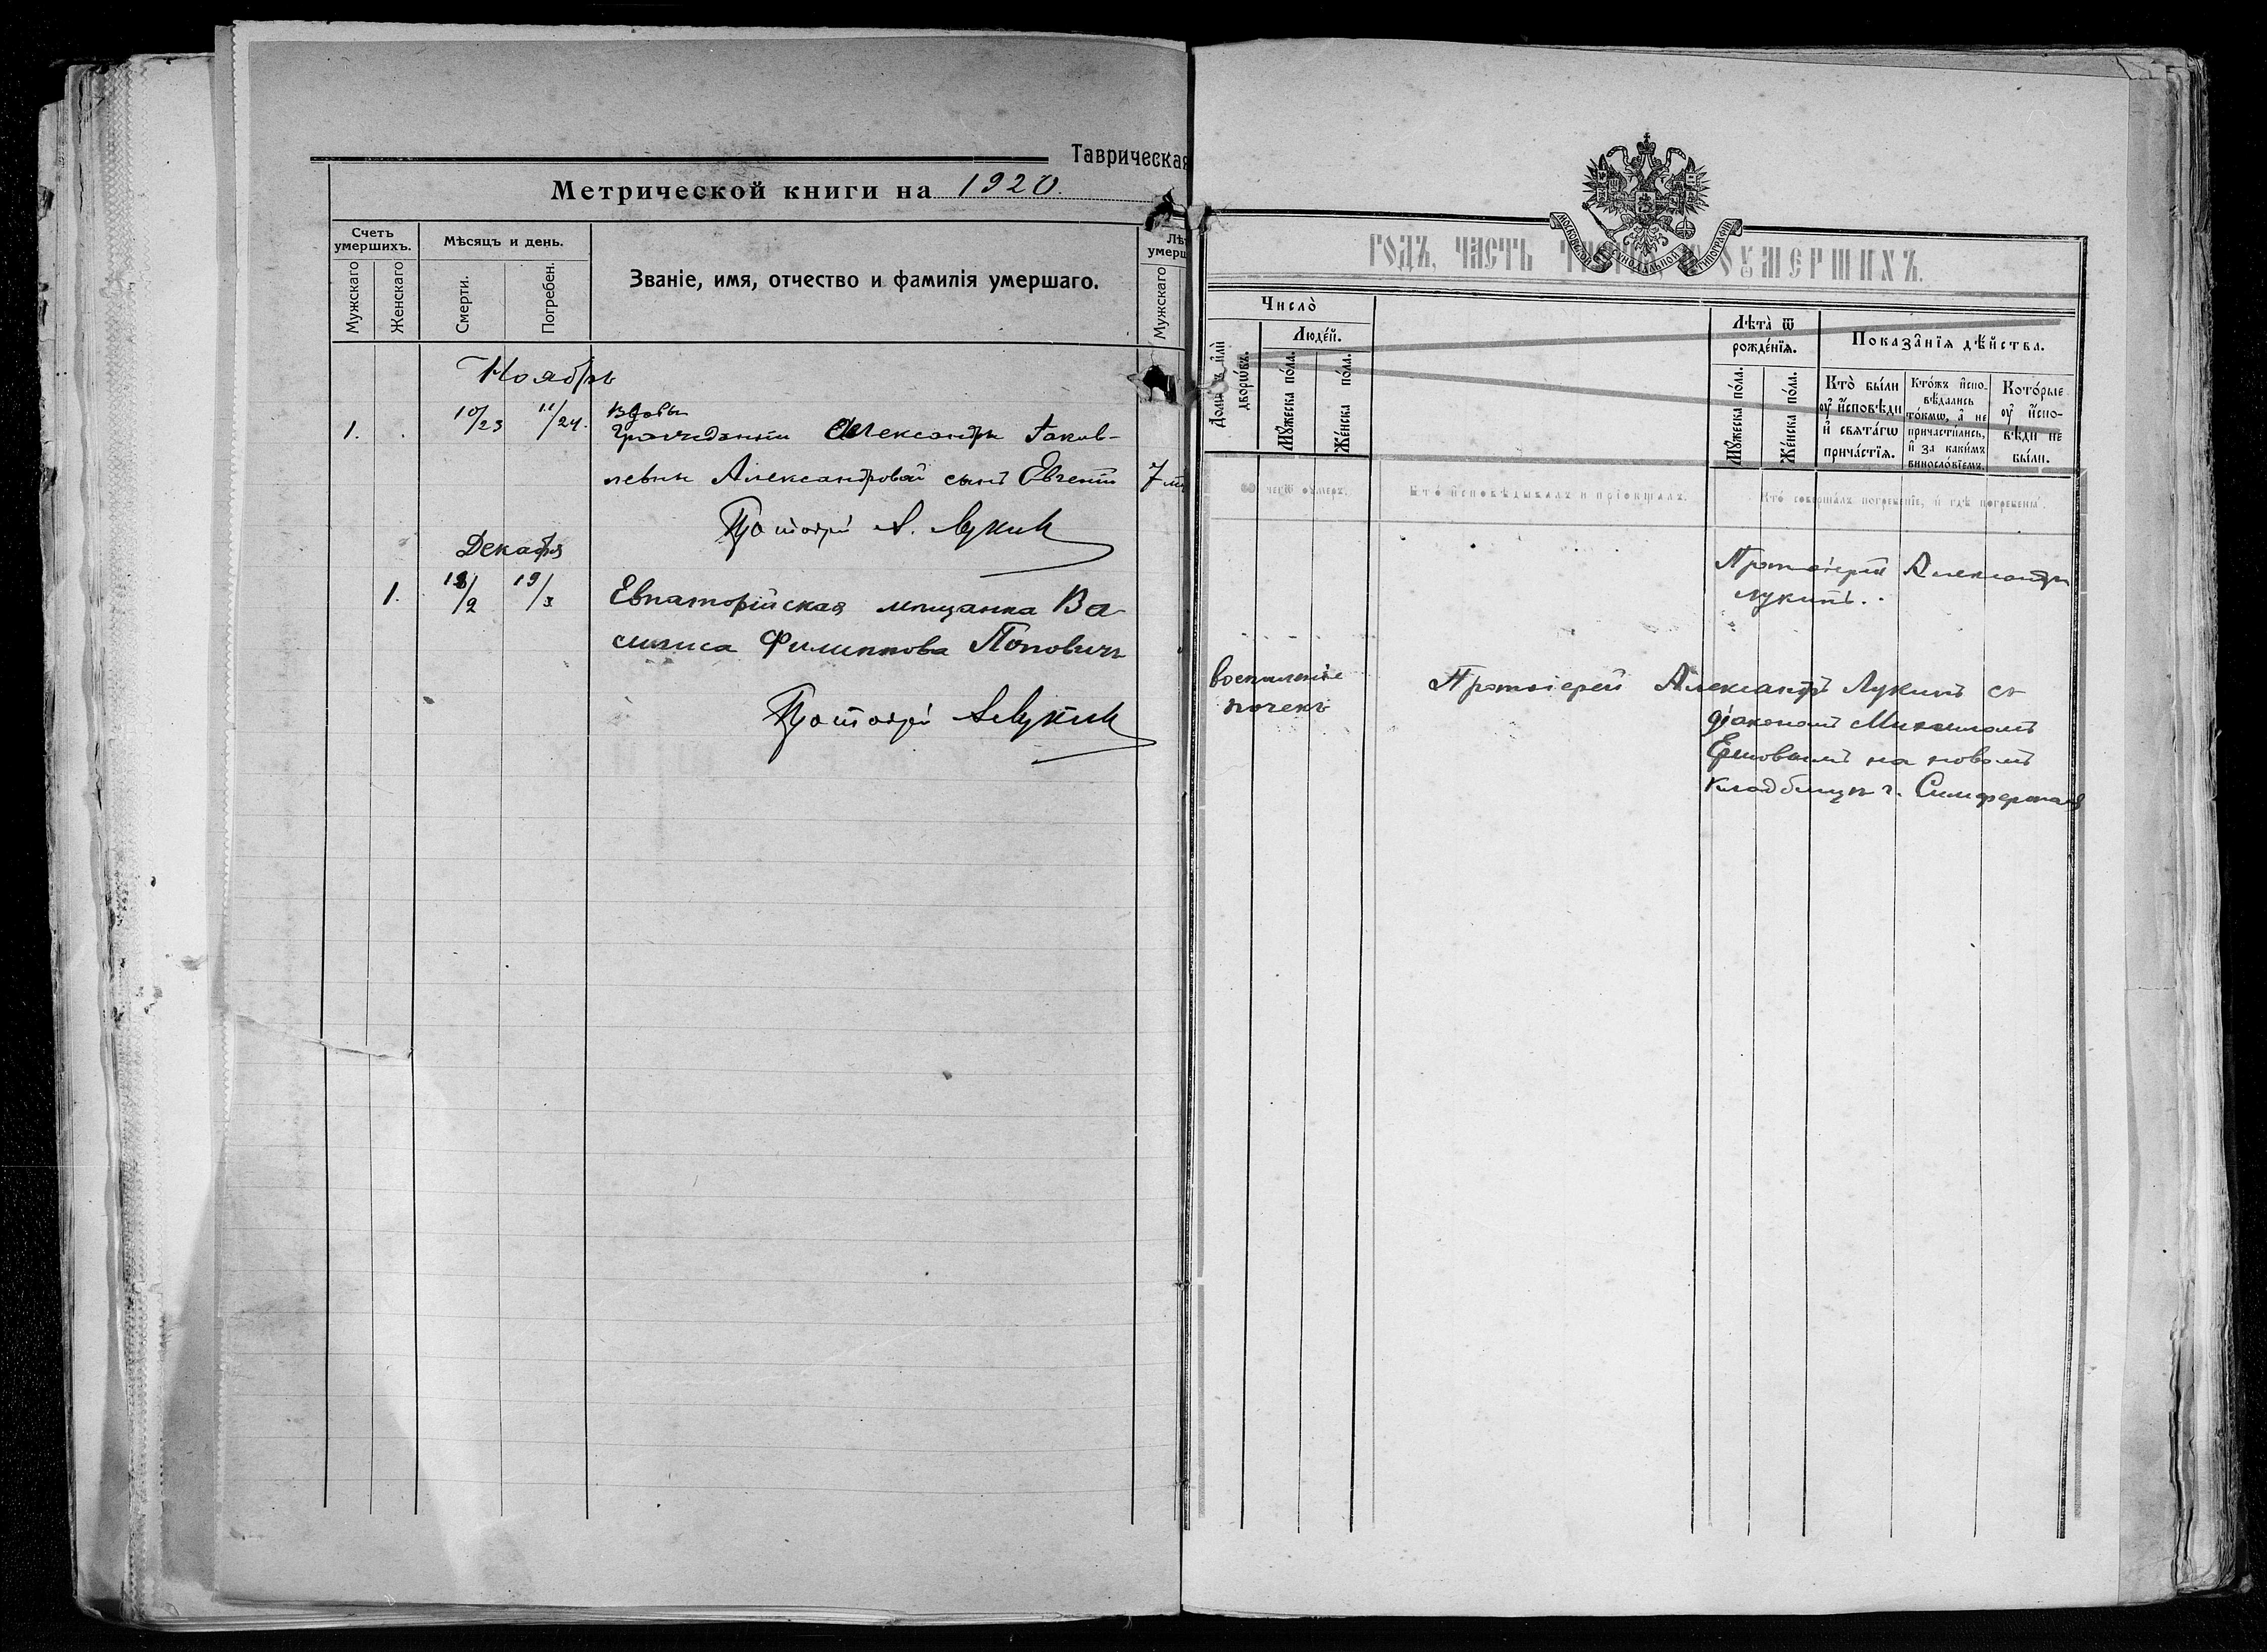 Таврическая
Метрической книги на 1920.
Счетъ умершихъ.
Мужскаго
Женскаго
Мѣсяцъ и день.
Смерти.
Погребен.
Званіе, имя, отчество и фамилія умершаго.
Лѣ
умерш
Мужскаго
Ноябрь
1.
10/23 11/24.
Вдовы
гражданки Александры Іаков-
левны Александровой сынъ Евгеній
7
Протоіерей А. Лукин
Декабря
1.
18/2 19/3
Евпаторійская мѣщанка Ва-
силиса Филиппова Поповичъ
Протоіерей А Лукин
МОСКОВСКОЙ СѴНОДАЛЬНОЙ ТИПОГРАФІИ
ГОДЪ, ЧАСТЬ ОУМЕРШИХЪ.
Число̀
дворѡ́въ.
Люде́й.
Мꙋ́жеска по́ла.
Же́нска по́ла.
Лѣта̀ ѿ
рожде́нїѧ.
Мꙋ́жеска по́ла.
Же́нска по́ла.
Показа̑нїѧ дѣ́йства.
Кто̀ бы́ли
оу҆ и҆сповѣди
и҆ свѧта́гѡ
прича́стїѧ.
Кто́жъ и҆спо-
вѣ́дались
то́кмѡ, а҆ не
причасти́лись,
и҆ за каки́мъ
винословіемъ.
Кото́рые
оу҆ и҆спо-
вѣди не
бы́ли.
чегѡ оумеръ.
Кто исповѣдывалъ и пріобщалъ.
Кто совершалъ погребеніе, и гдѣ погребены.
Протоіерей Александръ
Лукинъ.
воспаленіе
почекъ
Протоіерей Александръ Лукинъ съ
діакономъ Михаиломъ
на новомъ
кладбищѣ г. Симферополя